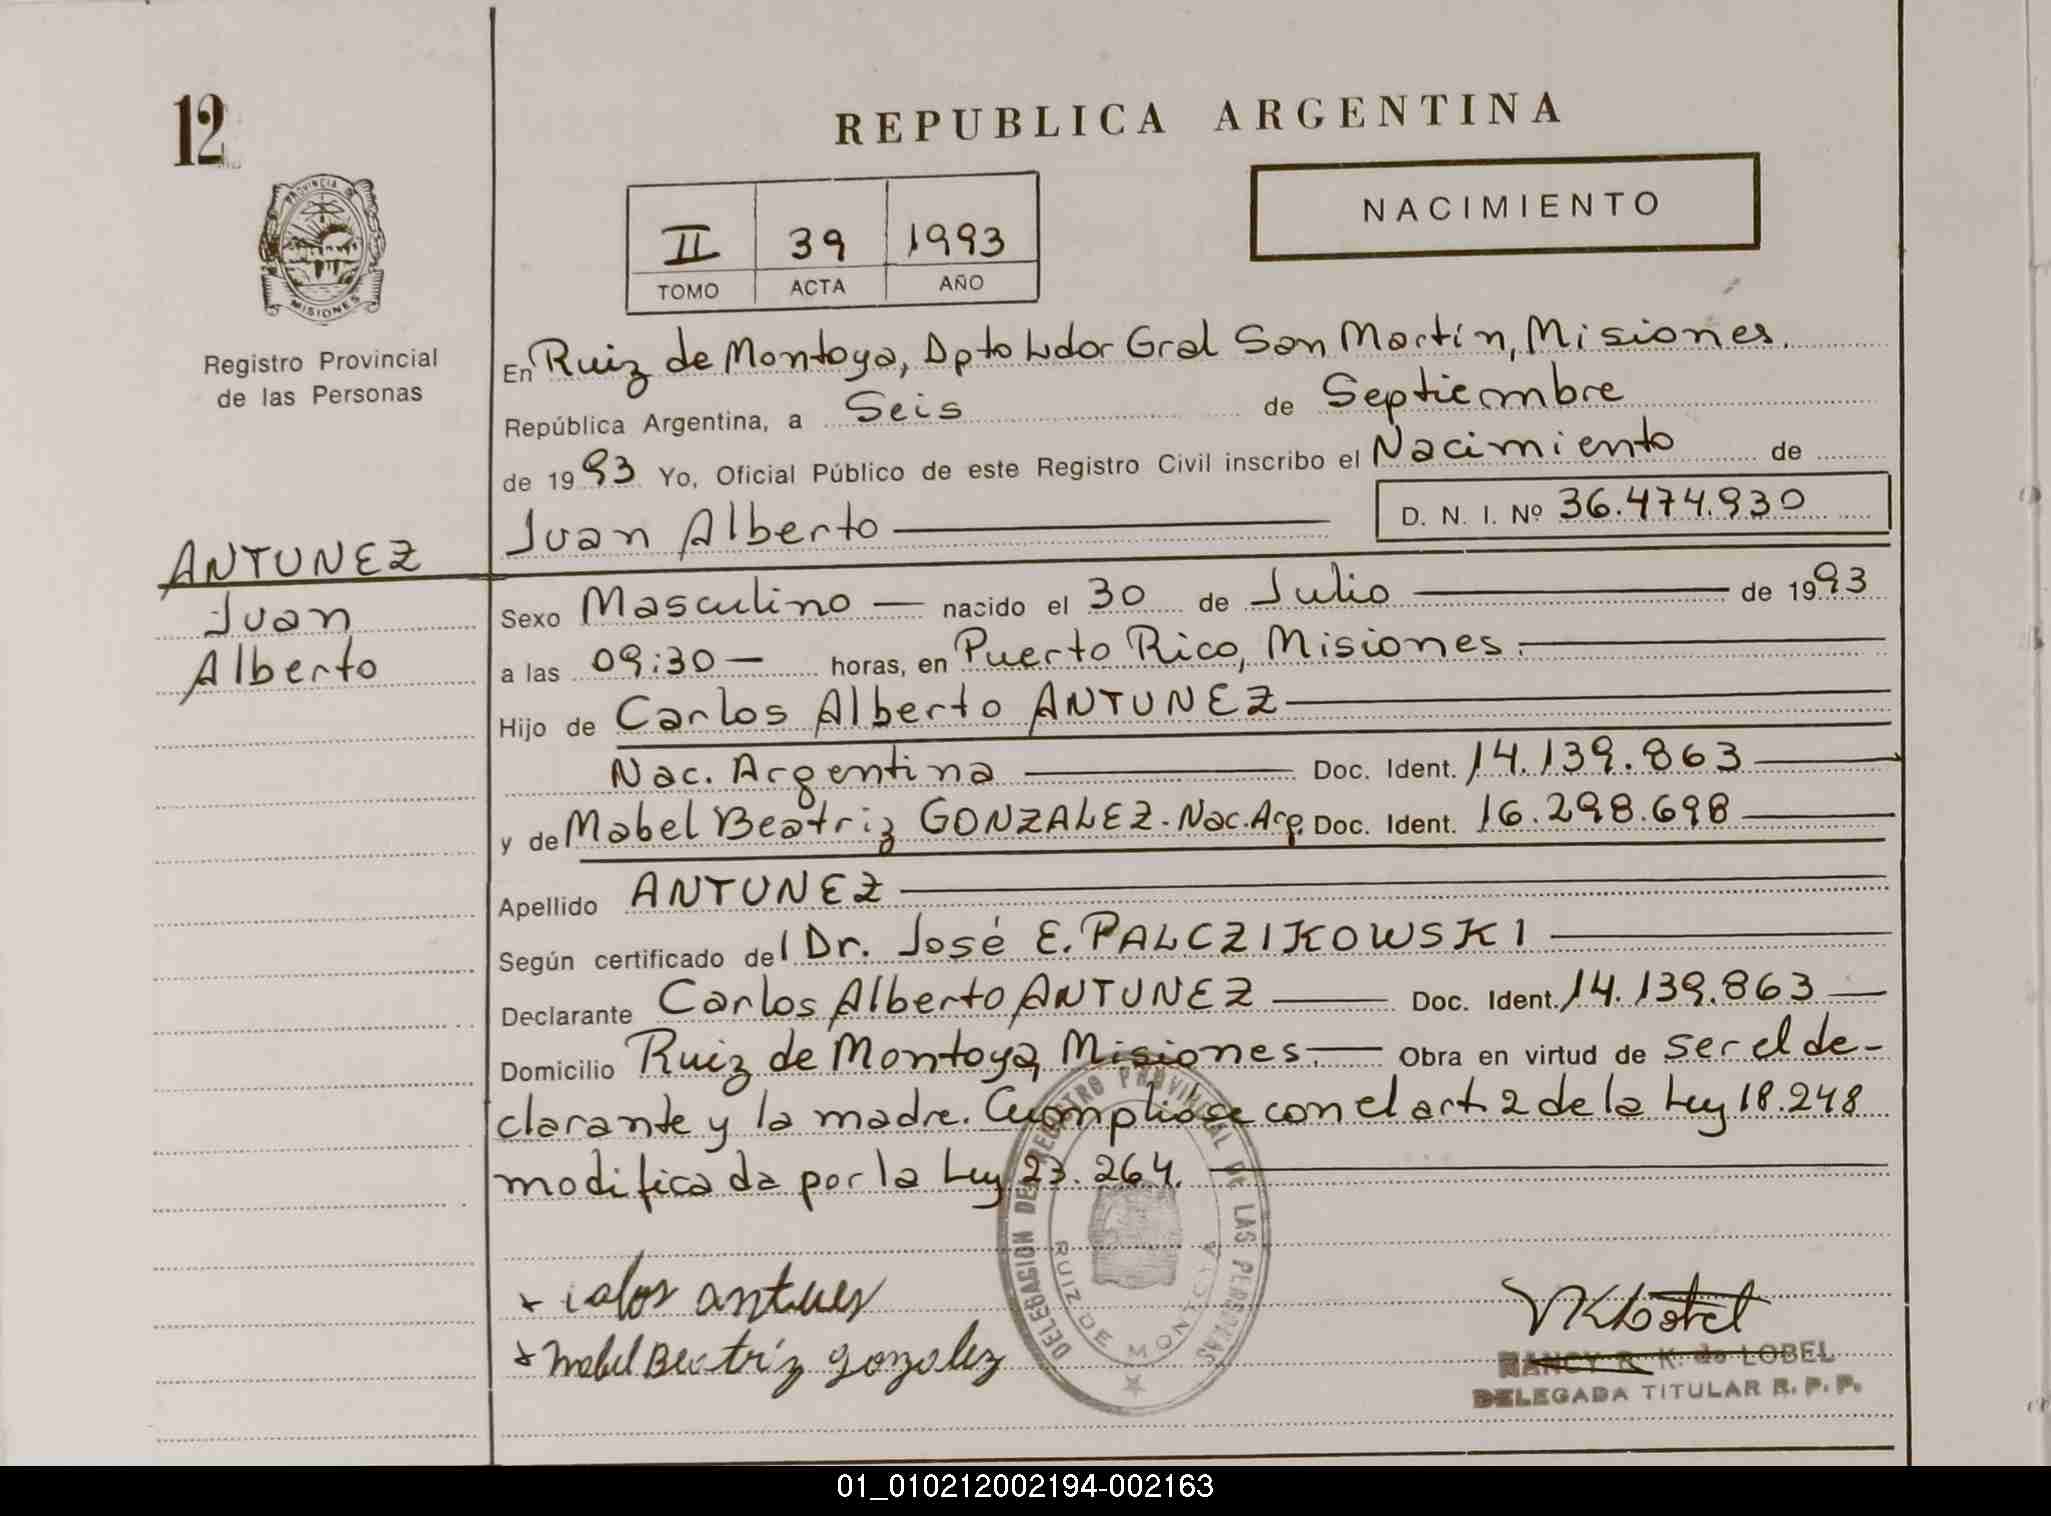 12
REPUBLICA ARGENTINA
NACIMIENTO
II 39 1993
TOMO ACTA AÑO
PROVINCIA DE MISIONES
Registro Provincial
de las Personas
En Ruiz de Montoya, Dpto Ldor Gral San Martín, Misiones.
República Argentina, a Seis de Septiembre
de 1993 Yo, Oficial Público de este Registro Civil inscribo el Nacimiento de
Juan Alberto D. N. I. Nº 36.474.930
ANTUNEZ
Juan
Alberto
Sexo Masculino — nacido el 30 de Julio de 1993
a las 09:30 — horas, en Puerto Rico, Misiones.
Hijo de Carlos Alberto ANTUNEZ
Nac. Argentina Doc. Ident. 14.139.863
y de Mabel Beatriz GONZALEZ. Nac. Arg. Doc. Ident. 16.298.698
Apellido ANTUNEZ
Según certificado del Dr. José E. PALCZIKOWSKI
Declarante Carlos Alberto ANTUNEZ Doc. Ident. 14.139.863
Domicilio Ruiz de Montoya, Misiones. Obra en virtud de ser el de-
clarante y la madre. Cumplióse con el art. 2 de la Ley 18.248
modificada por la Ley 23.264.
DELEGACION DEL REGISTRO PROVINCIAL DE LAS PERSONAS
RUIZ DE MONTOYA
Mabel Beatríz gonzalez
NANCY R. K. de LOBEL
DELEGADA TITULAR R. P. P.
01_010212002194-002163